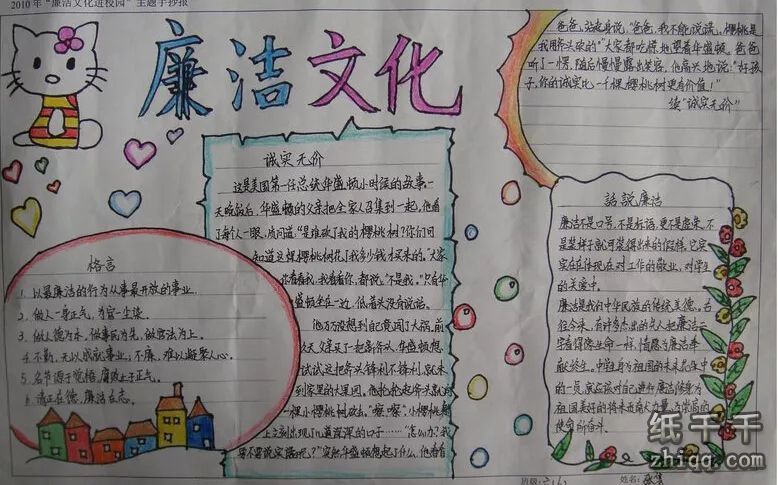 2010年“廉洁文化进校园”主题手抄报
廉洁文化
诚实无价
这是美国第一任总统华盛顿小时候的故事。一
天晚饭后，华盛顿的父亲把全家人召集到一起，他看
了每人一眼，质问道：“是谁砍了我的樱桃树？你们可
知道这棵樱桃树花了我多少钱才买来的。”大家
你看看我，我看看你，都说：“不是我。”只有华
盛顿坐在一边，低着头没有说话。
他万万没想到自己竟闯了大祸，前
几天父亲买了一把新斧头，华盛顿想
试试这把斧头锋利不锋利，就来
到家里的大果园。他抡起斧头就向
一棵小樱桃树砍去。“嚓嚓”小樱桃树
上立刻出现了几道深深的口子……“怎么办？我
要不要说实话呢？”突然华盛顿想起了什么，他看看
爸爸，站起身说：“爸爸，我不能说谎，樱桃树是
我用斧头砍的”大家都吃惊地望着华盛顿。爸爸
听了一愣，随后慢慢露出笑容，他高兴地说：“好孩
子，你的诚实比一千棵樱桃树更有价值！”
续“诚实无价”
格言
1. 以最廉洁的行为从事最开放的事业。
2. 做人一身正气，为官一尘不染。
3. 做人德为本，做事民为先，做官法为上。
4. 不勤，无以成就事业，不廉，难以凝聚人心。
5. 名节源于党悟，腐败止于正气。
6. 清正在德，廉洁在志。
話说廉洁
廉洁不是口号，不是标语，更不是虚荣，不
是装样子就可装得出来的假样，它实
实在在体现在对工作的敬业，对学生
的关爱中。
廉洁是我们中华民族的传统美德。古
往今来，有许多杰出的先人把廉洁二
字看得像生命一样，情愿为廉洁奉
献终生。中学生身为祖国的未来花朵中
的一员，就应该对自己进行廉洁修身，为
祖国美好的将来贡献力量，为崇高的
使命所奋斗。
班级：
姓名：
纸千千
zhiqq.com